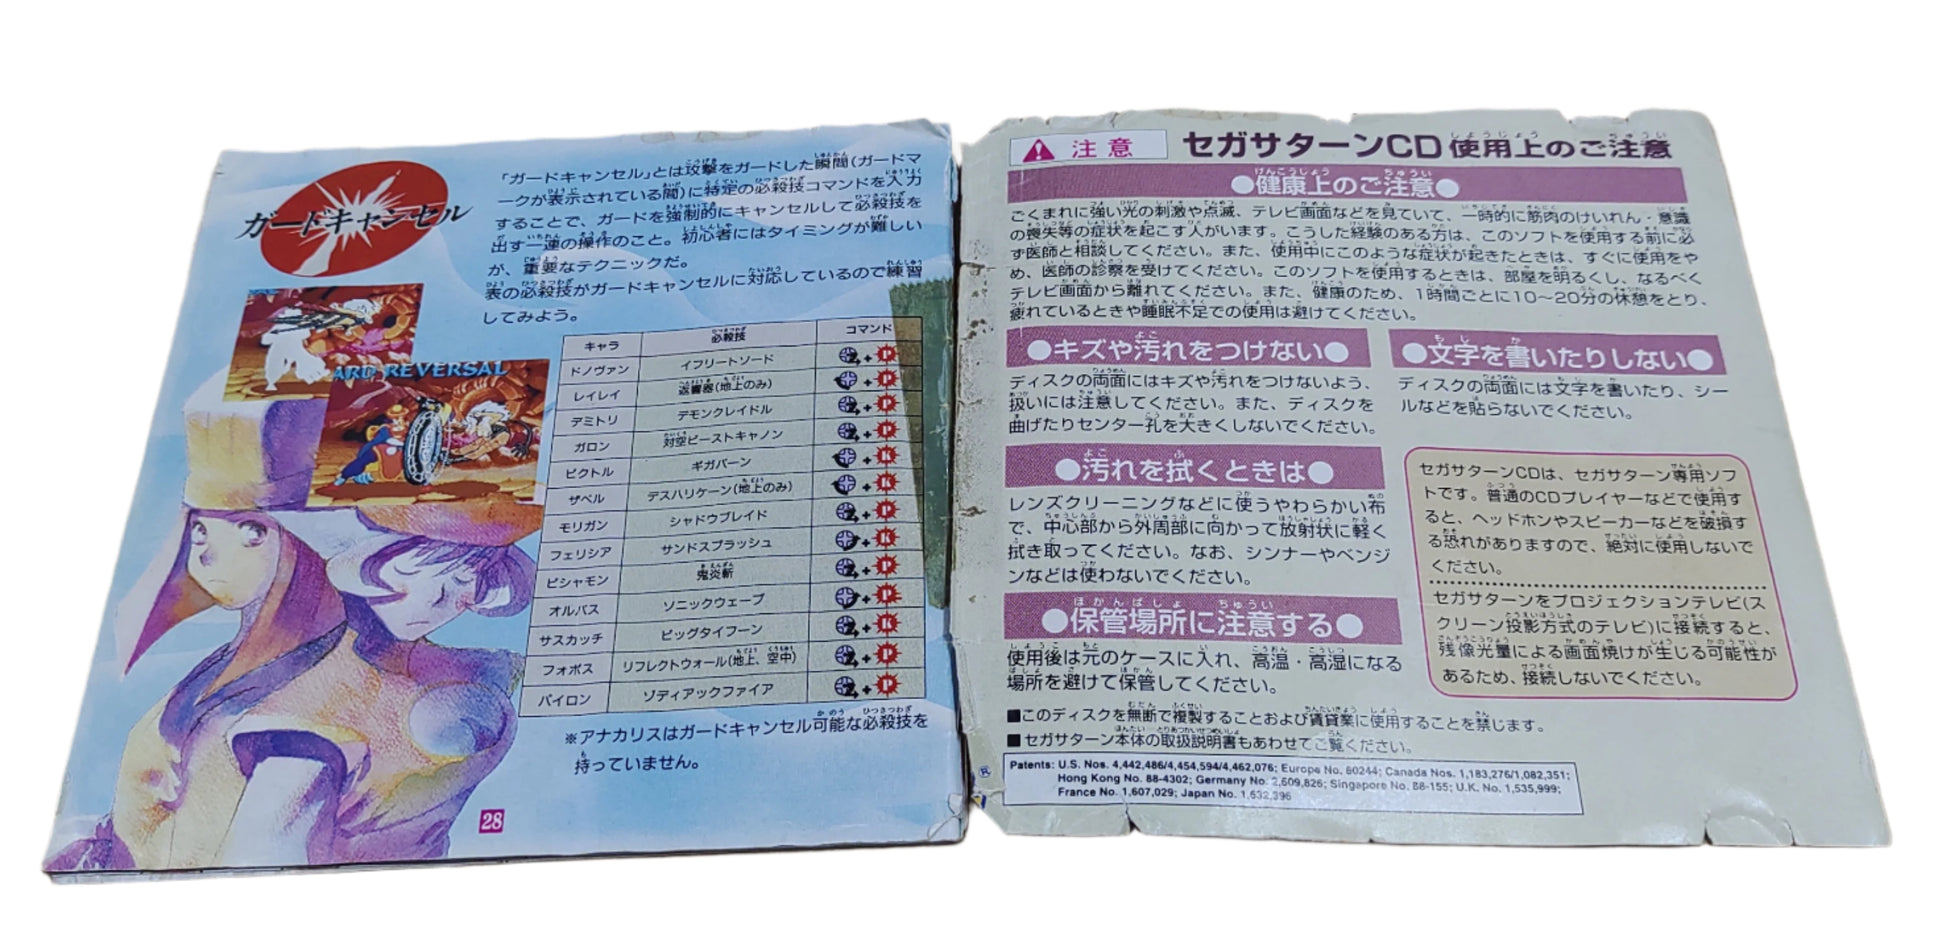 ガードキャンセル
「ガードキャンセル」とは攻撃をガードした瞬間(ガードマ
ークが表示されている間)に特定の必殺技コマンドを入力
することで、ガードを強制的にキャンセルして必殺技を
出す一連の操作のこと。初心者にはタイミングが難しい
が、重要なテクニックだ。
表の必殺技がガードキャンセルに対応しているので練習
してみよう。
ARD REVERSAL
キャラ 必殺技 コマンド
ドノヴァン イフリートソード +P
レイレイ 返響器(地上のみ) +P
デミトリ デモンクレイドル +P
ガロン 対空ビーストキャノン +P
ビクトル ギガバーン +K
ザベル デスハリケーン(地上のみ) +K
モリガン シャドウブレイド +P
フェリシア サンドスプラッシュ +K
ビシャモン 鬼炎斬 +P
オルバス ソニックウェーブ +P
サスカッチ ビッグタイフーン +K
フォボス リフレクトウォール(地上、空中) +P
パイロン ソディアックファイア +P
※アナカリスはガードキャンセル可能な必殺技を
持っていません。
28
注意
セガサターンCD使用上のご注意
●健康上のご注意●
ごくまれに強い光の刺激や点滅、テレビ画面などを見ていて、一時的に筋肉のけいれん・意識
の喪失等の症状を起こす人がいます。こうした経験のある方は、このソフトを使用する前に必
ず医師と相談してください。また、使用中にこのような症状が起きたときは、すぐに使用をや
め、医師の診察を受けてください。このソフトを使用するときは、部屋を明るくし、なるべく
テレビ画面から離れてください。また、健康のため、1時間ごとに10〜20分の休憩をとり、
疲れているときや睡眠不足での使用は避けてください。
●キズや汚れをつけない●
ディスクの両面にはキズや汚れをつけないよう、
扱いには注意してください。また、ディスクを
曲げたりセンター孔を大きくしないでください。
●文字を書いたりしない●
ディスクの両面には文字を書いたり、シー
ルなどを貼らないでください。
●汚れを拭くときは●
レンズクリーニングなどに使うやわらかい布
で、中心部から外周部に向かって放射状に軽く
拭き取ってください。なお、シンナーやベンジ
ンなどは使わないでください。
●保管場所に注意する●
使用後は元のケースに入れ、高温・高湿になる
場所を避けて保管してください。
セガサターンCDは、セガサターン専用ソフ
トです。普通のCDプレイヤーなどで使用す
ると、ヘッドホンやスピーカーなどを破損す
る恐れがありますので、絶対に使用しないで
ください。
セガサターンをプロジェクションテレビ(ス
クリーン投影方式のテレビ)に接続すると、
残像光量による画面焼けが生じる可能性が
あるため、接続しないでください。
■このディスクを無断で複製することおよび賃貸業に使用することを禁じます。
■セガサターン本体の取扱説明書もあわせてご覧ください。
®
Patents: U.S. Nos. 4,442,486/4,454,594/4,462,076; Europe No. 80244; Canada Nos. 1,183,276/1,082,351;
Hong Kong No. 88-4302; Germany No. 2,609,826; Singapore No. 88-155; U.K. No. 1,535,999;
France No. 1,607,029; Japan No. 1,632,396